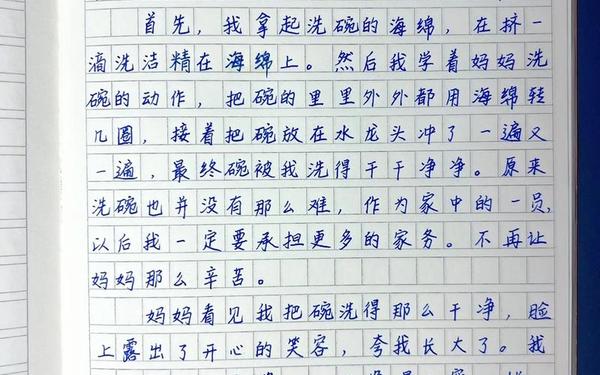 首先，我拿起洗碗的海绵，在挤一
滴洗洁精在海绵上。然后我学着妈妈洗
碗的动作，把碗的里里外外都用海绵转
几圈，接着把碗放在水龙头冲了一遍又
一遍，最终碗被我洗得干干净净。原来
洗碗也并没有那么难，作为家中的一员，
以后我一定要承担更多的家务。不再让
妈妈那么辛苦。
妈妈看见我把碗洗得那么干净，脸
上露出了开心的笑容，夸我长大了。我